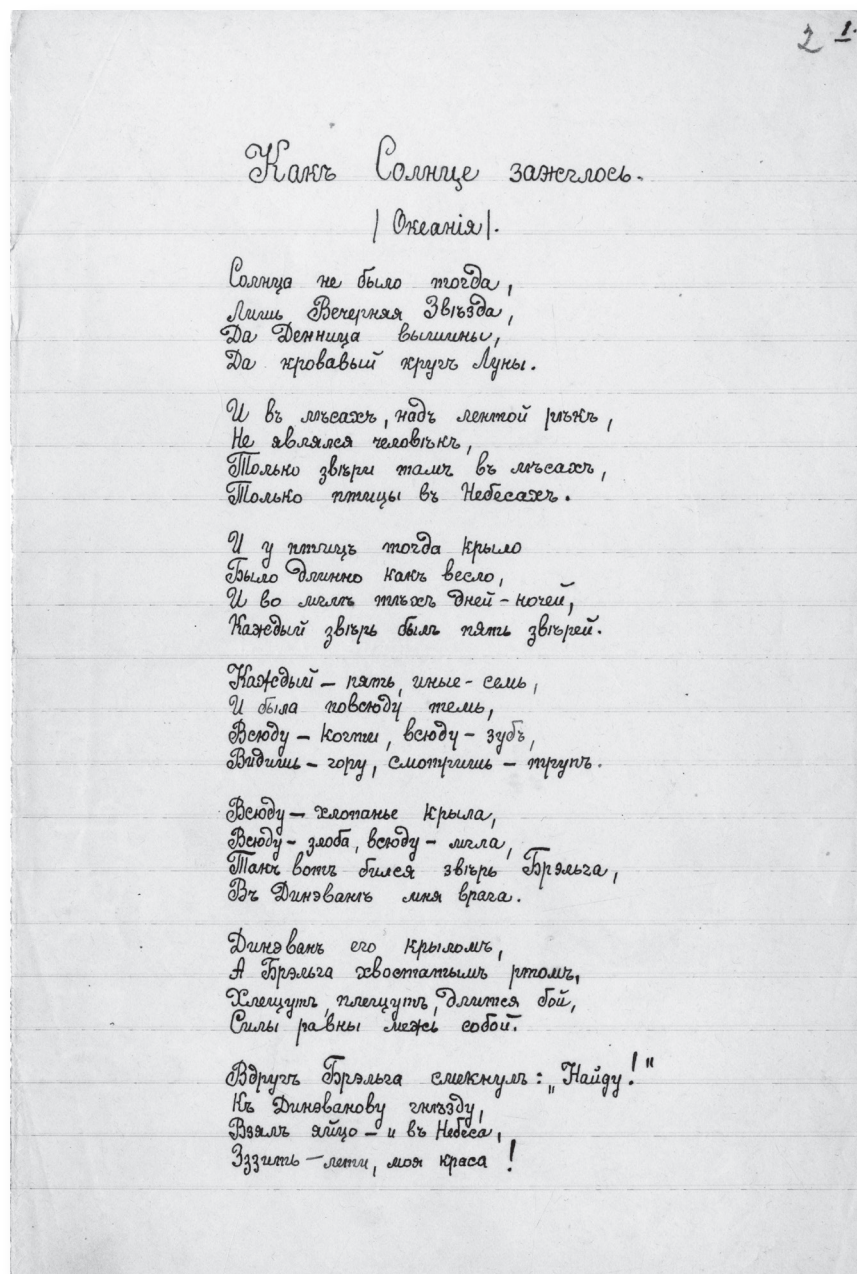 2 1.
Какъ Солнце зажглось.
| Океанія |.
Солнца не было тогда,
Лишь Вечерняя Звѣзда,
Да Денница вышины,
Да кровавый кругъ Луны.
И въ лѣсахъ, надъ лентой рѣкъ,
Не являлся человѣкъ,
Только звѣри тамъ въ лѣсахъ,
Только птицы въ Небесахъ.
И у птицъ тогда крыло
Было длинно какъ весло,
И во мглѣ тѣхъ дней-ночей,
Каждый звѣрь былъ пять звѣрей.
Каждый — пять, иные - семь,
И была повсюду темь,
Всюду — когти, всюду — зубъ,
Видишь — гору, смотришь — трупъ.
Всюду — хлопанье крыла,
Всюду - злоба, всюду - мгла,
Такъ вотъ бился звѣрь Брэльга,
Въ Динэванѣ мня врага.
Динэванъ его крыломъ,
А Брэльга хвостатымъ ртомъ,
Хлещутъ, плещутъ, длится бой,
Силы равны межь собой.
Вдругъ Брэльга смекнулъ: „Найду!"
Къ Динэванову гнѣзду,
Взялъ яйцо — и въ Небеса,
Эззить — лети, моя краса!